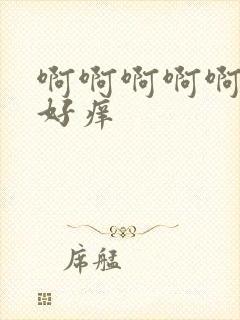 啊啊啊啊啊
好痒
席艋